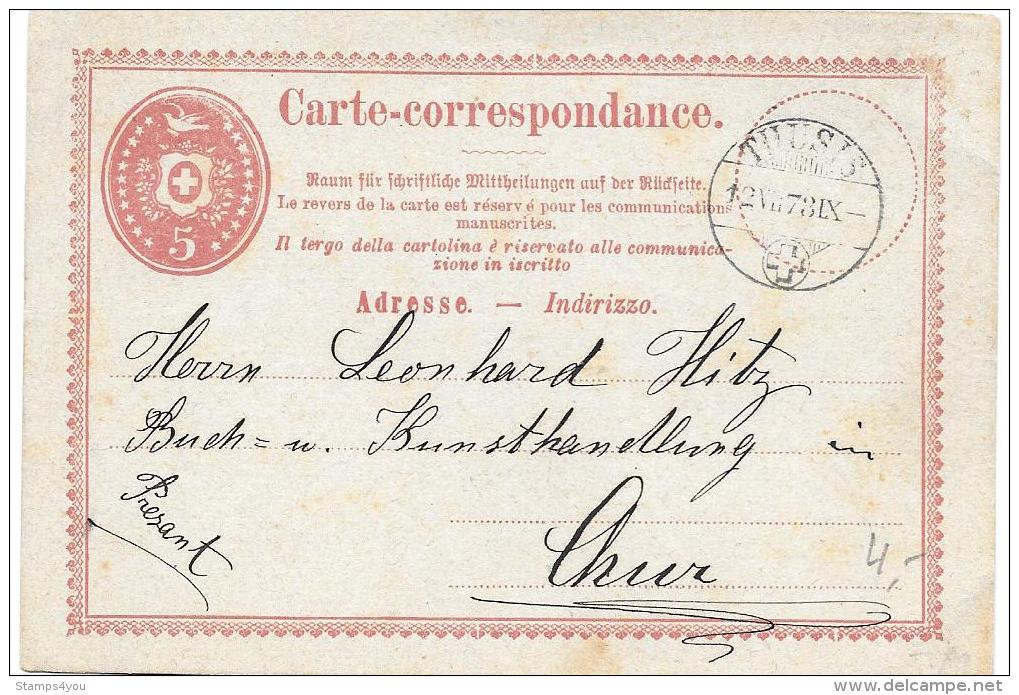 Carte-correspondance.
THUSIS
12 VII 78 IX –
5
Raum für schriftliche Mittheilungen auf der Rückseite.
Le revers de la carte est réservé pour les communications
manuscrites.
Il tergo della cartolina è riservato alle communica-
zione in iscritto
Adresse. — Indirizzo.
Herrn Leonhard Hitz
Buch= u. Kunsthandlung in
Presant
Chur
4,-
Stamps4you
delcampe.net